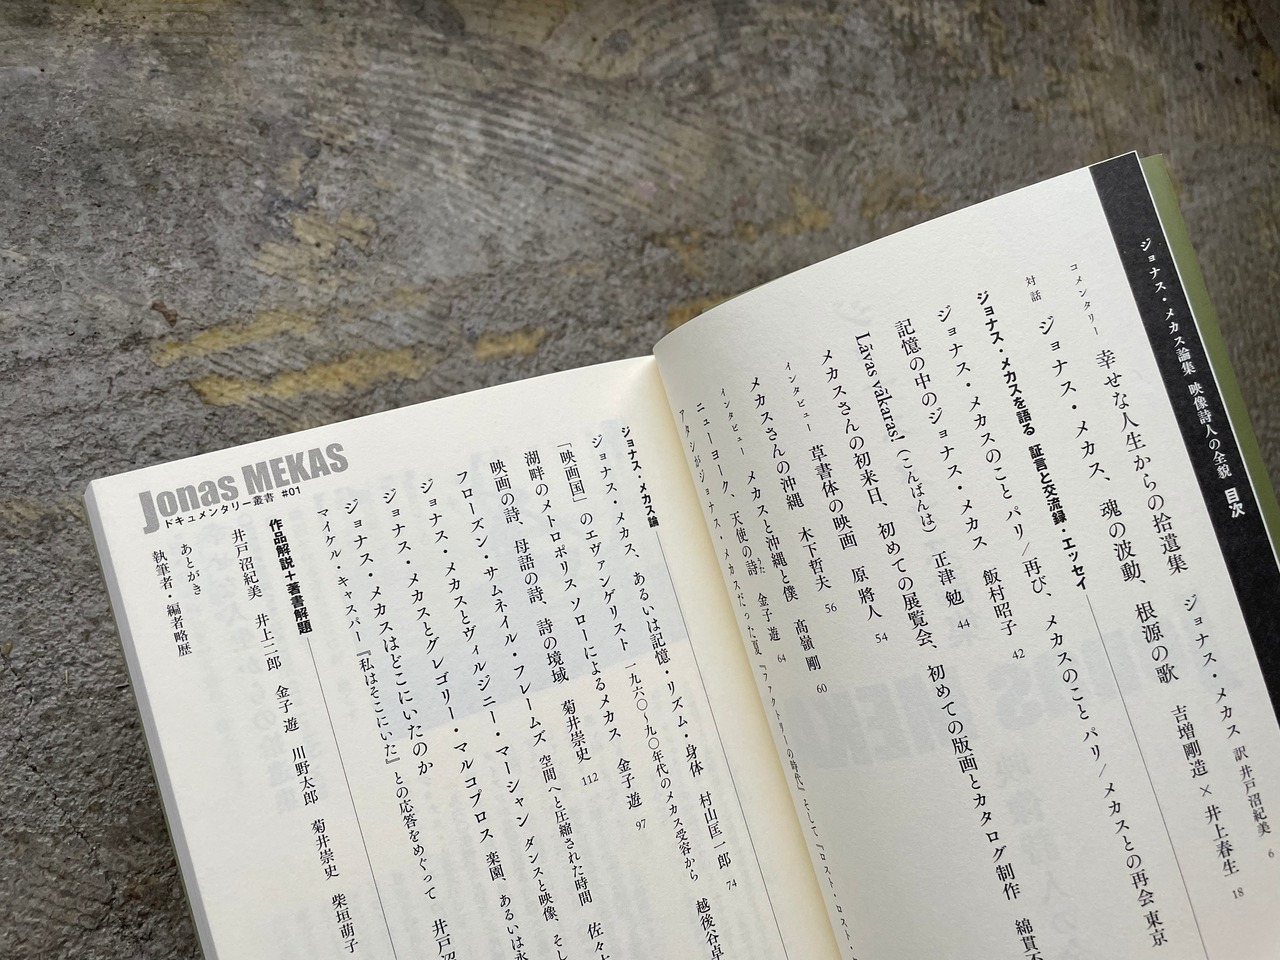 ジョナス・メカス論集 映像詩人の全貌 目次
コメンタリー 幸せな人生からの拾遺集 ジョナス・メカス 訳 井戸沼紀美 6
対話 ジョナス・メカス、魂の波動、根源の歌 吉増剛造×井上春生 18
ジョナス・メカスを語る 証言と交流録・エッセイ
ジョナス・メカスのこと パリ/再び、メカスのこと パリ/メカスとの再会 東京
記憶の中のジョナス・メカス 飯村昭子 42
Lāvas vākaras!(こんばんは) 正津 勉 44
メカスさんの初来日、初めての展覧会、初めての版画とカタログ制作 綿貫不
インタビュー 草書体の映画 原 將人 54
メカスさんの沖縄 木下哲夫 56
インタビュー メカスと沖縄と僕 高嶺 剛 60
ニューヨーク、天使の詩 うた 金子 遊 64
アタシがジョナス・メカスだった夏 『ファクトリーの時代』そして『ロスト・ロスト・
ジョナス・メカス論
ジョナス・メカス、あるいは記憶・リズム・身体 村山匡一郎 74
「映画国」のエヴァンゲリスト 一九六〇〜九〇年代のメカス受容から 越後谷卓
湖畔のメトロポリス ソローによるメカス 金子 遊 97
映画の詩、母語の詩、詩の境域 菊井崇史 112
フローズン・サムネイル・フレームズ 空間へと圧縮された時間 佐々
ジョナス・メカスとヴィルジニー・マーシャン ダンスと映像、そし
ジョナス・メカスとグレゴリー・マルコプロス 楽園、あるいは永
ジョナス・メカスはどこにいたのか
マイケル・キャスパー『私はそこにいた』との応答をめぐって 井戸沼
作品解説+著書解題
井戸沼紀美 井上二郎 金子 遊 川野太郎 菊井崇史 柴垣萌子
あとがき
執筆者・編者略歴
Jonas MEKAS
ドキュメンタリー叢書 #01